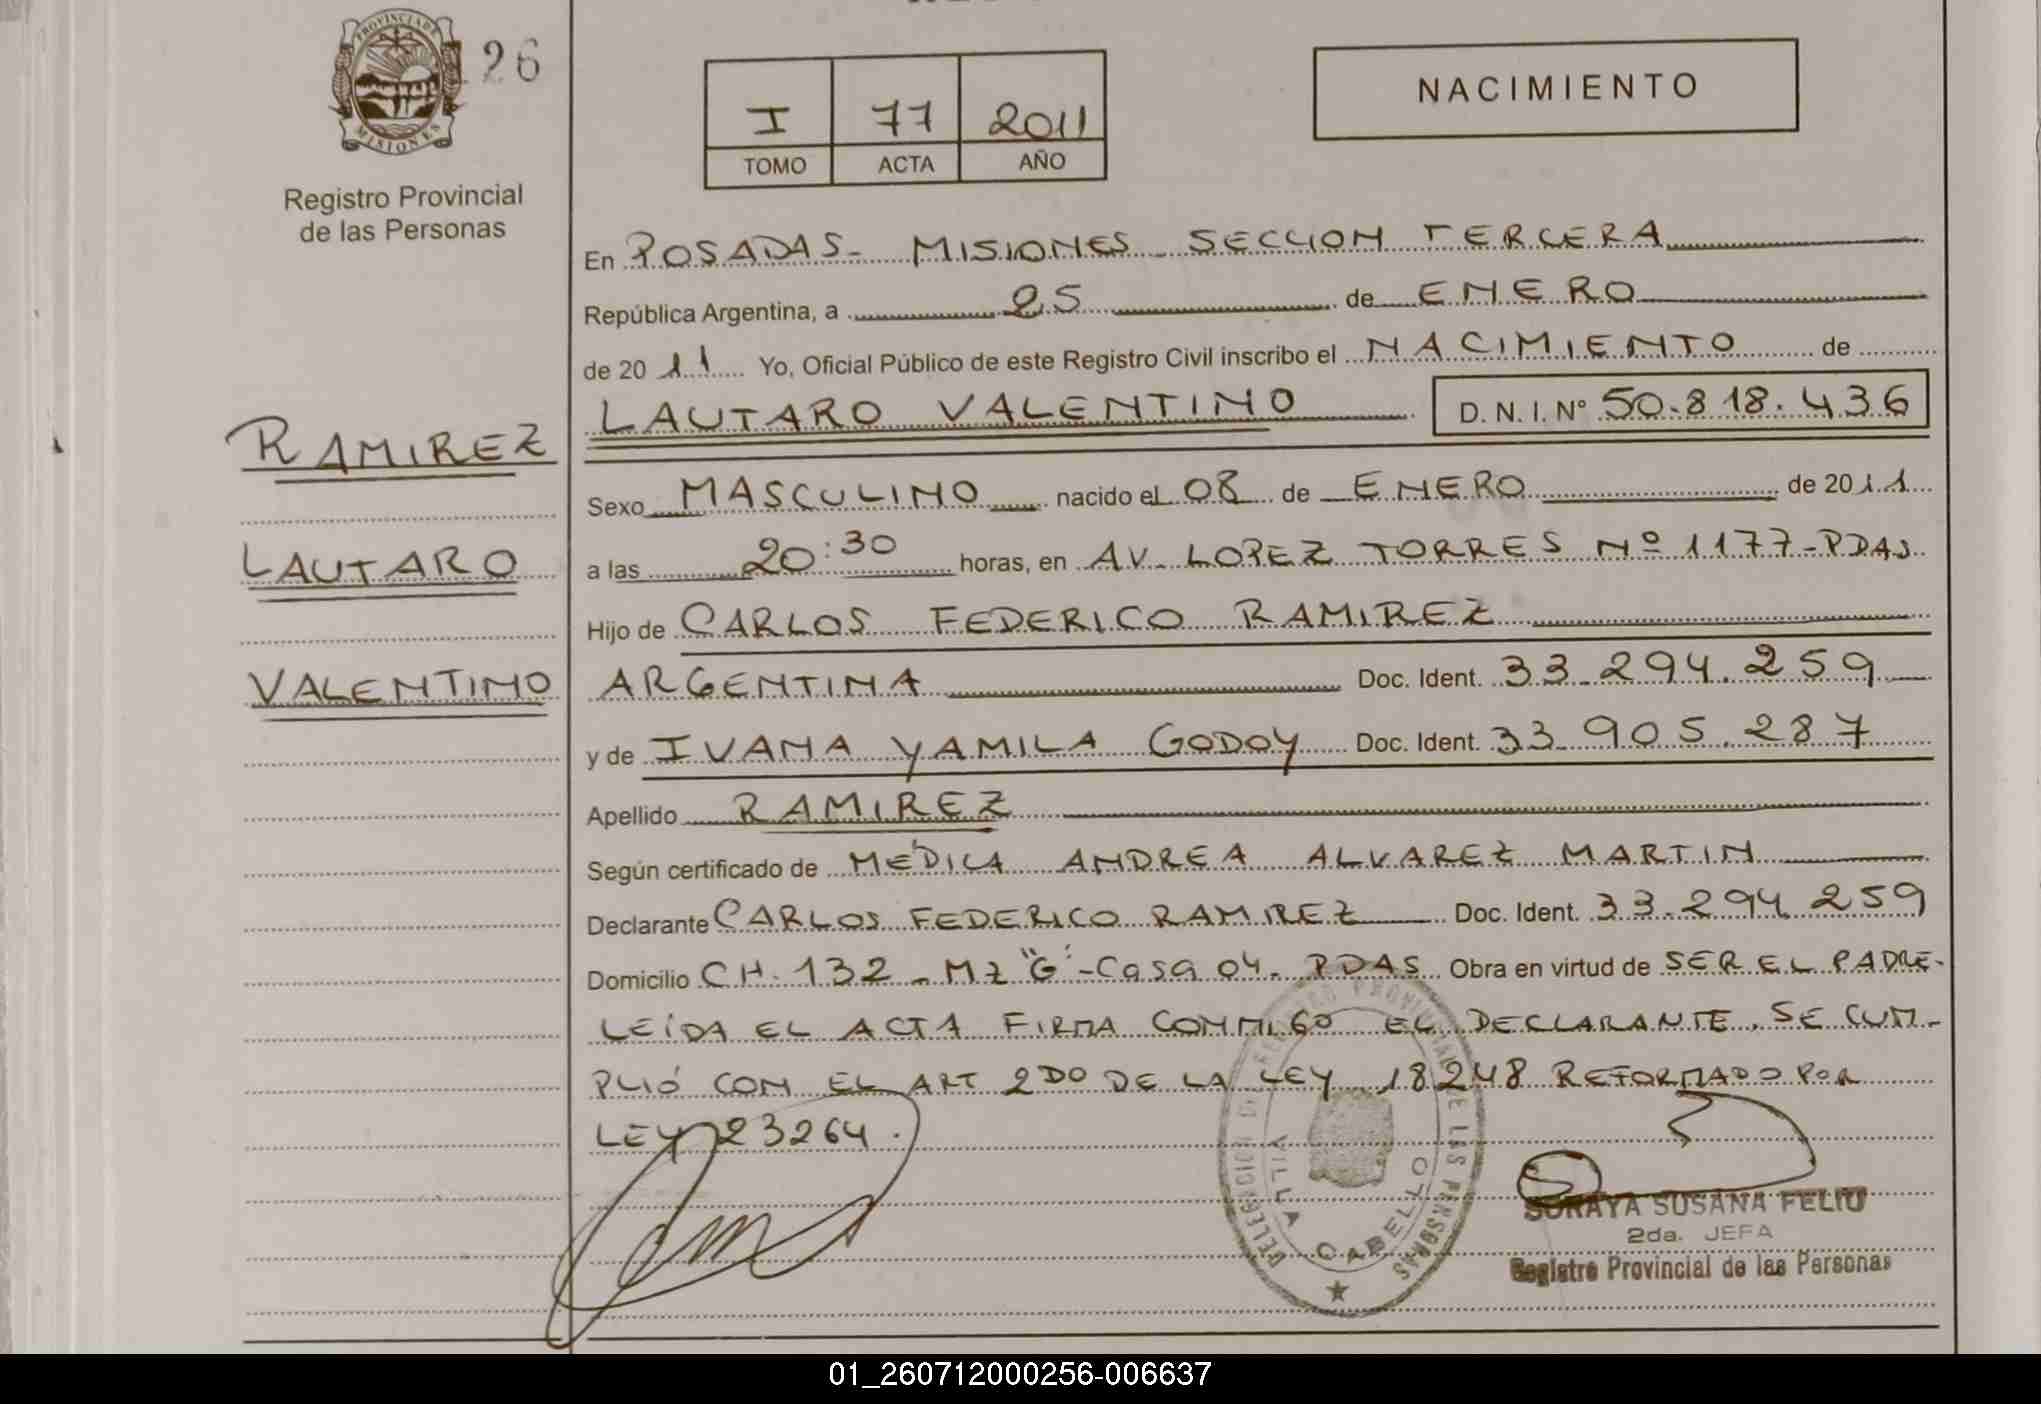 PROVINCIA DE
MISIONES
26
Registro Provincial
de las Personas
I 77 2011
TOMO ACTA AÑO
NACIMIENTO
En POSADAS - MISIONES - SECCION TERCERA
República Argentina, a 25 de ENERO
de 20 11 Yo, Oficial Público de este Registro Civil inscribo el NACIMIENTO de
LAUTARO VALENTINO D. N. I. Nº 50.818.436
RAMIREZ
LAUTARO
VALENTINO
Sexo MASCULINO nacido el 08 de ENERO de 20 11
a las 20:30 horas, en AV. LOPEZ TORRES Nº 1177-PDAS
Hijo de CARLOS FEDERICO RAMIREZ
ARGENTINA Doc. Ident. 33.294.259
y de IVANA YAMILA GODOY Doc. Ident. 33.905.287
Apellido RAMIREZ
Según certificado de MÉDICA ANDREA ALVAREZ MARTIN
Declarante CARLOS FEDERICO RAMIREZ Doc. Ident. 33.294.259
Domicilio CH. 132 - MZ "G" - Casa 04. PDAS Obra en virtud de SER EL PADRE-
LEÍDA EL ACTA FIRMA CONMIGO EL DECLARANTE. SE CUM-
PLIÓ CON EL ART 2DO DE LA LEY 18248 REFORMADO POR
LEY 23264.
DELEGACION DEL REGISTRO PROVINCIAL DE LAS PERSONAS
VILLA CABELLO
SORAYA SUSANA FELIU
2da. JEFA
Registro Provincial de las Personas
01_260712000256-006637